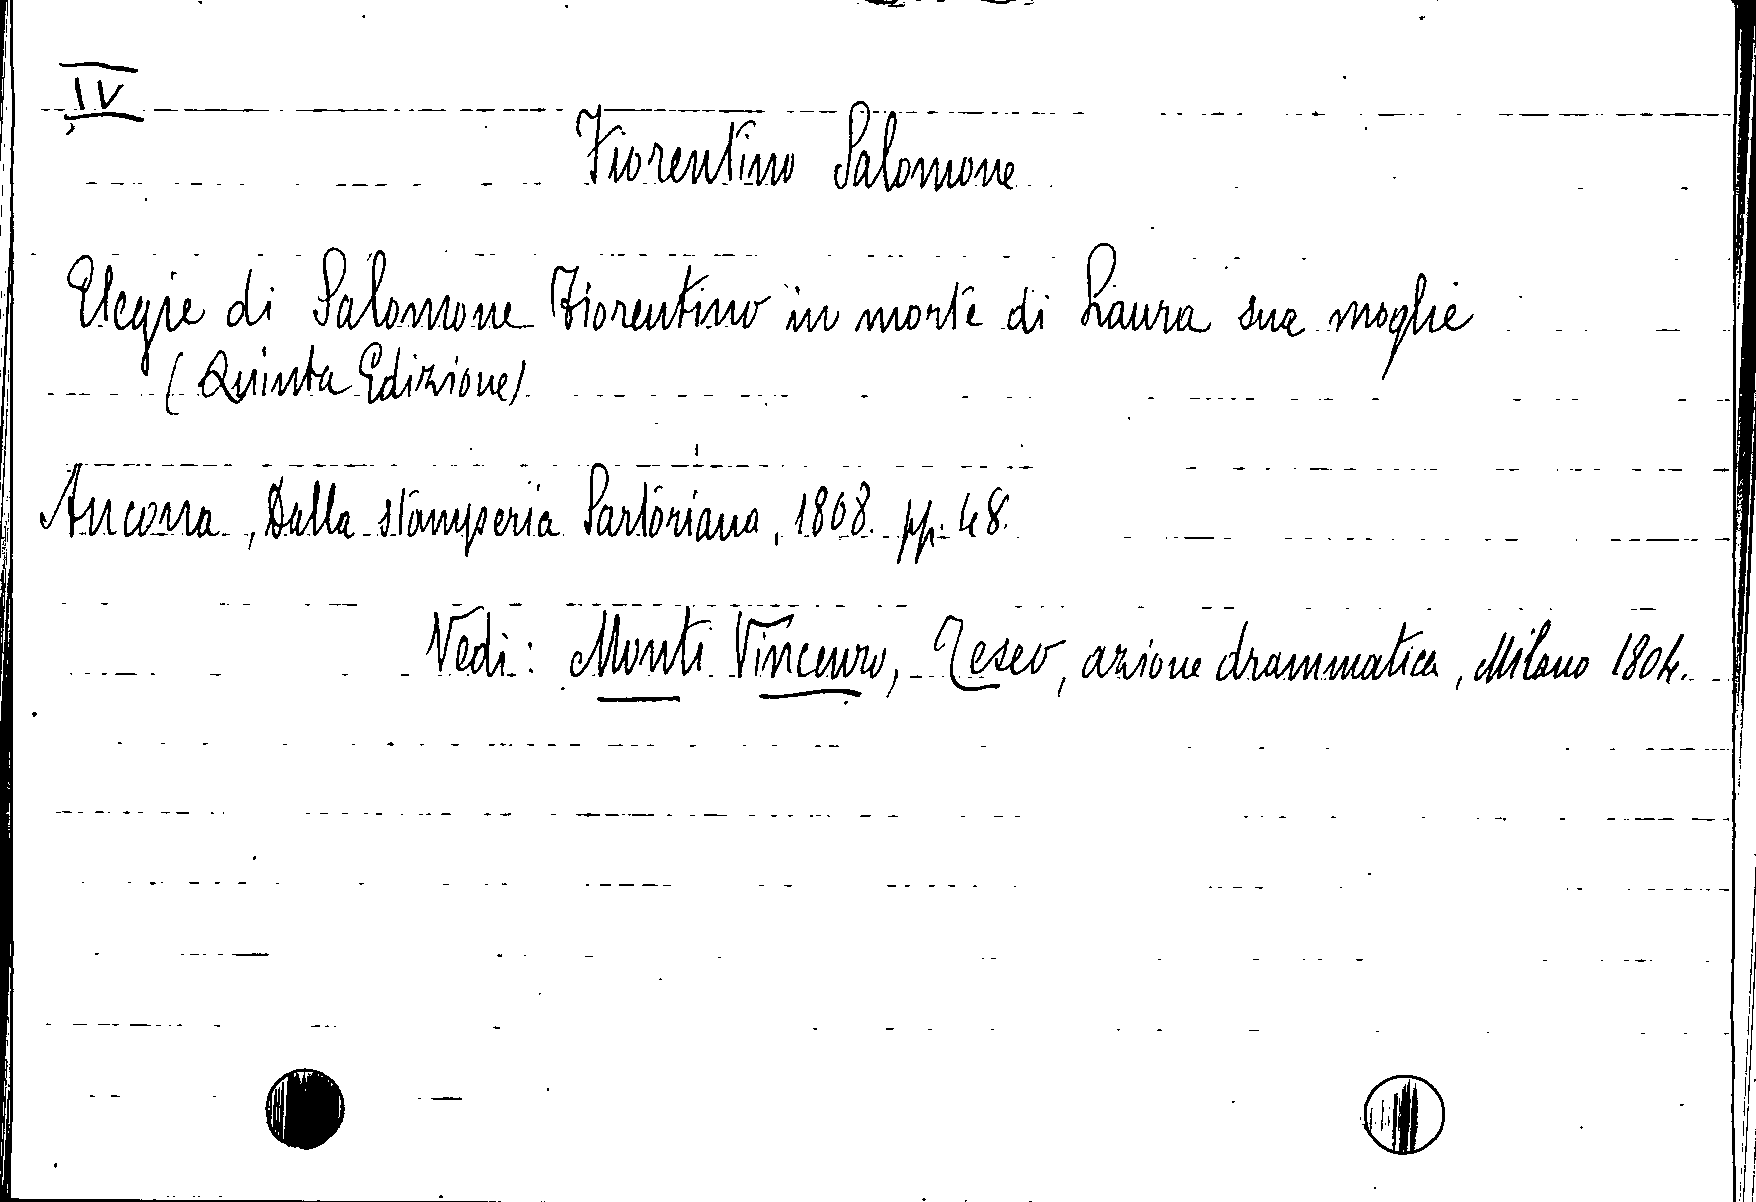 IV
Fiorentino Salomone
Elegie di Salomone Fiorentino in morte di Laura sua moglie
(Quinta Edizione)
Ancona, Dalla stamperia Sartoriana, 1808. pp. 48.
Vedi: Monti Vincenzo, Teseo, azione drammatica, Milano 1804.